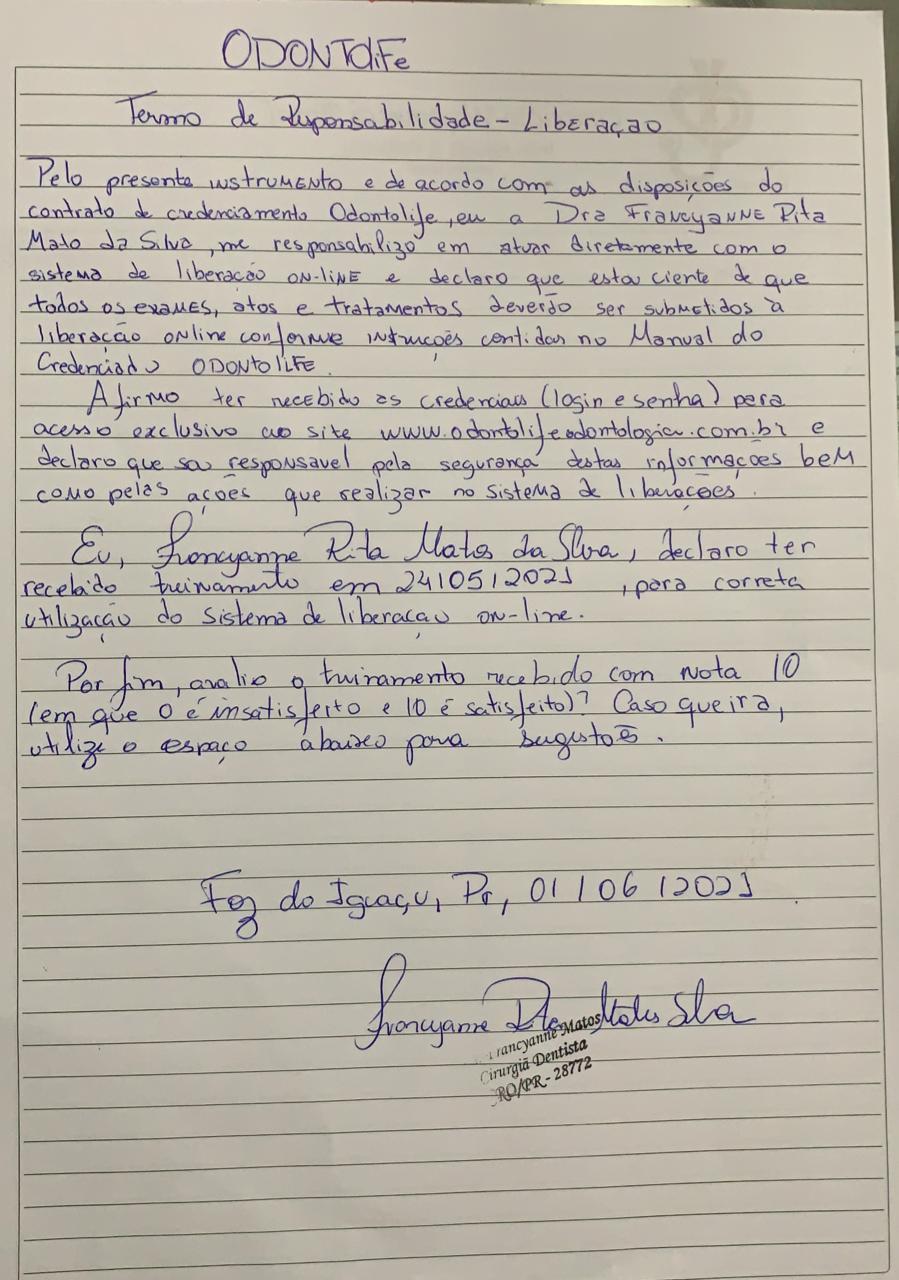 ODONTOLIFE
Termo de Responsabilidade - Liberação
Pelo presente instrumento e de acordo com as disposições do
contrato de credenciamento Odontolife, eu a Dra Francyanne Rita
Mato da Silva, me responsabilizo em atuar diretamente com o
sistema de liberação on-line e declaro que estou ciente de que
todos os exames, atos e tratamentos deverão ser submetidos à
liberação online conforme instruções contidas no Manual do
Credenciado ODONTOLIFE.
Afirmo ter recebido as credenciais (login e senha) para
acesso exclusivo ao site www.odontolifeodontologia.com.br e
declaro que sou responsavel pela segurança destas informações bem
como pelas ações que realizar no sistema de liberações.
Eu, Francyanne Rita Matos da Silva, declaro ter
recebido treinamento em 24/05/2021, para correta
utilização do sistema de liberação on-line.
Por fim, avalio o treinamento recebido com nota 10
(em que 0 é insatisfeito e 10 é satisfeito)? Caso queira,
utilize o espaço abaixo para sugestõe.
Foz do Iguaçu, Pr, 01/06/2021
Francyanne Rita Matos Silva
Francyanne Matos
Cirurgiã Dentista
RO/PR - 28772